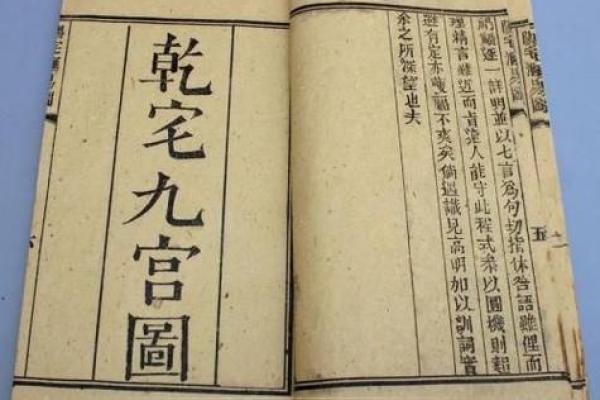 逐一詳明並以七言為句切指休咎語雖俚而
理精言雖近而人能守此程式以圓機則趨
避有定亦福不爽矣倘遇識見高明加以訓詞
余之所深望也夫
五
乾宅九宮圖